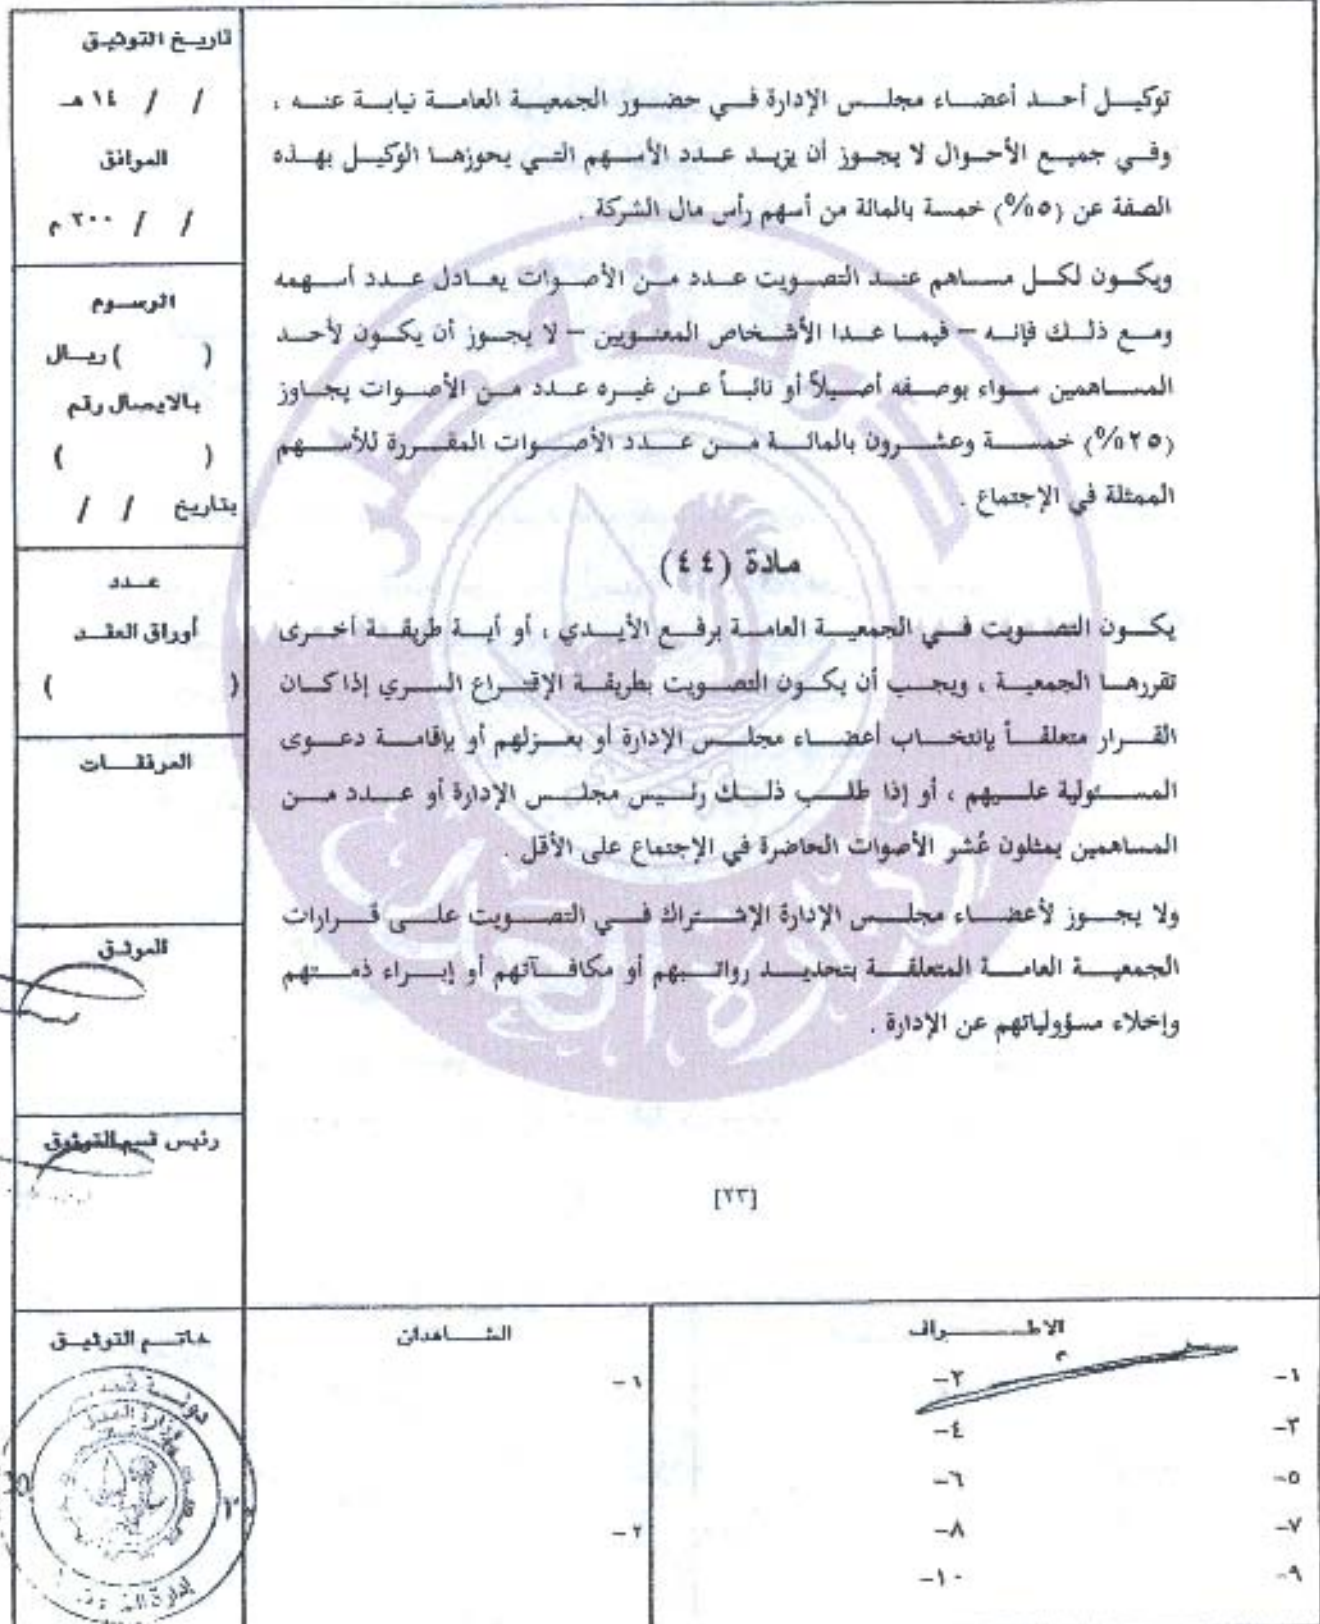 توكيل أحد أعضاء مجلس الإدارة في حضور الجمعية العامة نيابة عنه ،
وفي جميع الأحوال لا يجوز أن يزيد عدد الأسهم التي يحوزها الوكيل بهذه
الصفة عن (٥%) خمسة بالمائة من أسهم رأس مال الشركة .
ويكون لكل مساهم عند التصويت عدد من الأصوات يعادل عدد أسهمه
ومع ذلك فإنه – فيما عدا الأشخاص المعنويين – لا يجوز أن يكون لأحد
المساهمين سواء بوصفه أصيلاً أو نائباً عن غيره عدد من الأصوات يجاوز
(٢٥%) خمسة وعشرون بالمائة من عدد الأصوات المقررة للأسهم
الممثلة في الإجتماع .
مادة (٤٤)
يكون التصويت في الجمعية العامة برفع الأيدي ، أو أية طريقة أخرى
تقررها الجمعية ، ويجب أن يكون التصويت بطريقة الإقتراع السري إذا كان
القرار متعلقاً بإنتخاب أعضاء مجلس الإدارة أو بعزلهم أو بإقامة دعوى
المسئولية عليهم ، أو إذا طلب ذلك رئيس مجلس الإدارة أو عدد من
المساهمين يمثلون عُشر الأصوات الحاضرة في الإجتماع على الأقل .
ولا يجوز لأعضاء مجلس الإدارة الإشتراك في التصويت على قرارات
الجمعية العامة المتعلقة بتحديد رواتبهم أو مكافآتهم أو إبراء ذمتهم
وإخلاء مسؤولياتهم عن الإدارة .
[٢٣]
تاريخ التوثيق
/ / ١٤ هـ
الموافق
/ / ٢٠٠ م
الرسوم
( ) ريال
بالايصال رقم
( )
بتاريخ / /
عدد
أوراق العقد
( )
المرفقات
الموثق
رئيس قسم التوثيق
الاطراف
١- ٢-
٣- ٤-
٥- ٦-
٧- ٨-
٩- ١٠-
الشاهدان
١-
٢-
خاتم التوثيق
دولة قطر
وزارة العدل